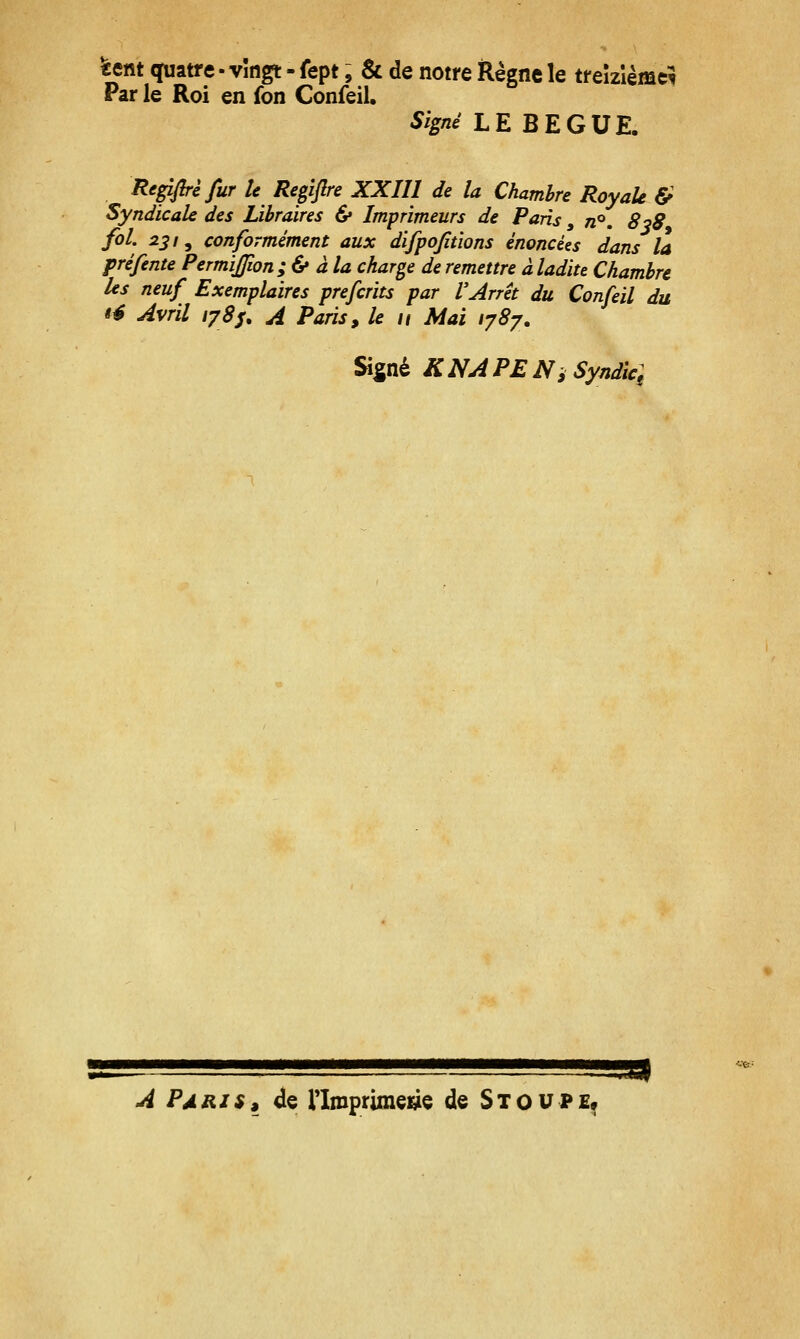 cent quatre-vingt-ſept, & de notre Règne le treizième.
Par le Roi en ſon Conſeil.
Signé LE BEGUE.
Regiſtré ſur le Regiſtre XXIII de la Chambre Royale &
Syndicale des Libraires & Imprimeurs de Paris, n°. 838,
fol. 231, conformément aux diſpoſitions énoncées dans la
préſente Permiſſion; & à la charge de remettre à ladite Chambre
les neuf Exemplaires preſcrits par l'Arrêt du Conſeil du
16 Avril 1785. A Paris, le 11 Mai 1787.
Signé KNAPEN, Syndic.
A PARIS, de l'Imprimerie de STOUPE,